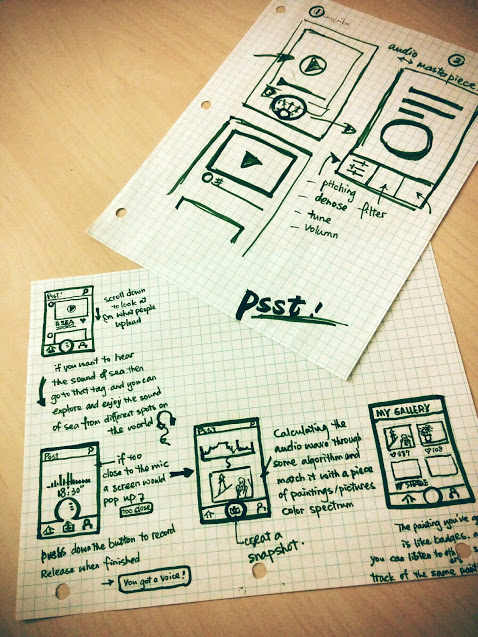 1
2
audio
↔ masterpiece!
- pitching
- denose filter
- tune
- volumn
Psst!
Psst!
scroll down
to look at
what people
upload
# SEA
if you want to hear
the sound of sea, then
go to that tag, and you can
explore and enjoy the sound
of sea from different spots on
the world
Psst
18:30"
if too
close to the mic
a screen would
pop up
too close
press down the button to record
Release when finished
→ You got a voice!
Psst
creat a
snapshot.
Calculating the
audio wave through
some algorithm and
match it with a piece
of paintings/pictures
color spectrum
MY GALLERY
SHARE
The painting you've
is like badges.
you can listen to
track of the same